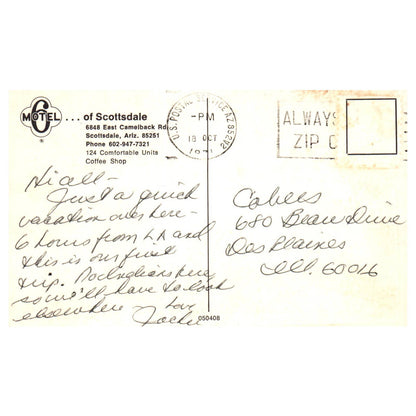 MOTEL 6 ... of Scottsdale
6848 East Camelback Rd.
Scottsdale, Ariz. 85251
Phone 602-947-7321
124 Comfortable Units
Coffee Shop
U.S. POSTAL SERVICE AZ 85202
PM
18 OCT
ALWAYS
ZIP C
Hi all-
Just a quick
vacation over here -
6 hours from LA and
this is our first
trip. No Indians here
so we'll have to look
elsewhere
Love
Jackie
Cabees
680 Beau Drive
Des Plaines
Ill. 60016
050408